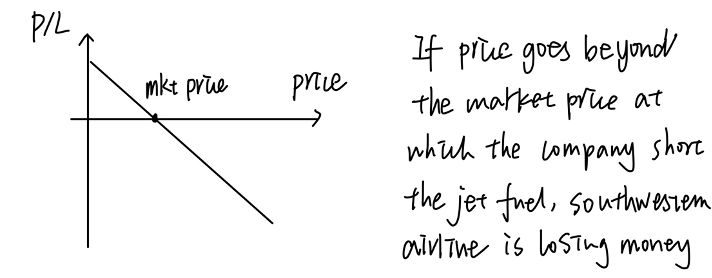 P/L
mkt price
price
If price goes beyond
the market price at
which the company short
the jet fuel, southwestern
airline is losing money